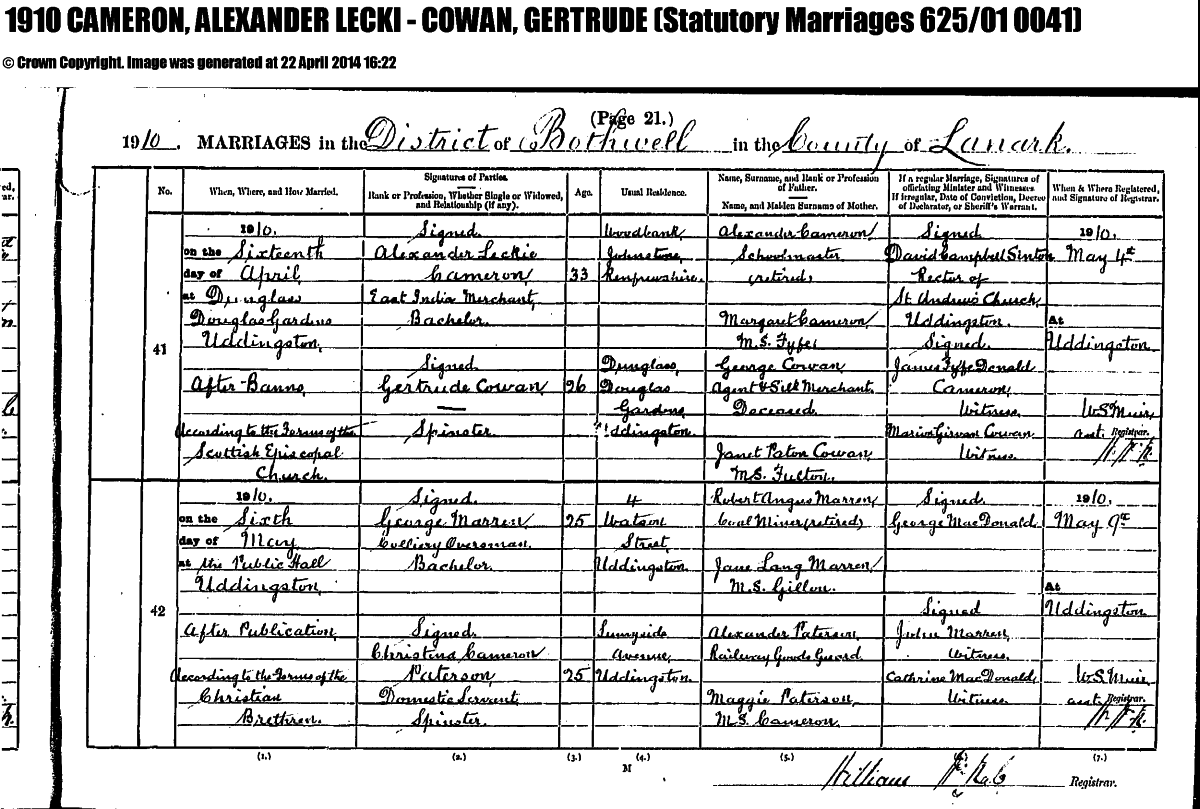 1910 CAMERON, ALEXANDER LECKI - COWAN, GERTRUDE (Statutory Marriages 625/01 0041)
© Crown Copyright. Image was generated at 22 April 2014 16:22
(Page 21.)
1910. MARRIAGES in the District of Bothwell in the County of Lanark.
No.
When, Where, and How Married.
Signatures of Parties.
Rank or Profession, Whether Single or Widowed, and Relationship (if any).
Age.
Usual Residence.
Name, Surname, and Rank or Profession of Father.
Name, and Maiden Surname of Mother.
If a regular Marriage, Signatures of officiating Minister and Witnesses
If irregular, Date of Conviction, Decree of Declarator, or Sheriff's Warrant.
When & Where Registered, and Signature of Registrar.
41
1910.
on the Sixteenth
day of April
at Dunglass
Douglas Gardens
Uddingston.
After Banns
According to the Forms of the
Scottish Episcopal
Church.
Signed.
Alexander Leckie
Cameron
East India Merchant
Bachelor.
Signed
Gertrude Cowan
Spinster
33
26
Woodbank
Johnstone
Renfrewshire.
Dunglass
Douglas
Gardens
Uddingston.
Alexander Cameron
Schoolmaster
(retired)
Margaret Cameron
M.S. Fyfe
George Cowan
Agent & Silk Merchant
Deceased.
Janet Paton Cowan
M.S. Fulton.
Signed
David Campbell Sinton
Rector of
St Andrews Church
Uddingston.
Signed.
James Fyfe Donald
Cameron
Witness.
Marion Girvan Cowan
Witness.
1910.
May 4th
At
Uddingston
W S Muir
asst. Registrar.
42
1910.
on the Sixth
day of May
at the Public Hall
Uddingston
After Publication
According to the Forms of the
Christian
Brethren.
Signed.
George Marren
Colliery Oversman.
Bachelor
Signed.
Christina Cameron
Paterson
Domestic Servant
Spinster.
25
25
4
Watson
Street
Uddingston
Sunnyside
Avenue
Uddingston.
Robert Angus Marren
Coal Miner (retired)
Jane Lang Marren
M.S. Gillon.
Alexander Paterson
Railway Goods Guard.
Maggie Paterson
M.S. Cameron.
Signed.
George MacDonald
Signed
John Marren
Witness.
Cathrine MacDonald
Witness
1910.
May 9th
At
Uddingston
W S Muir
asst. Registrar.
(1.) (2.) (3.) (4.) (5.) (7.)
M
William Registrar.